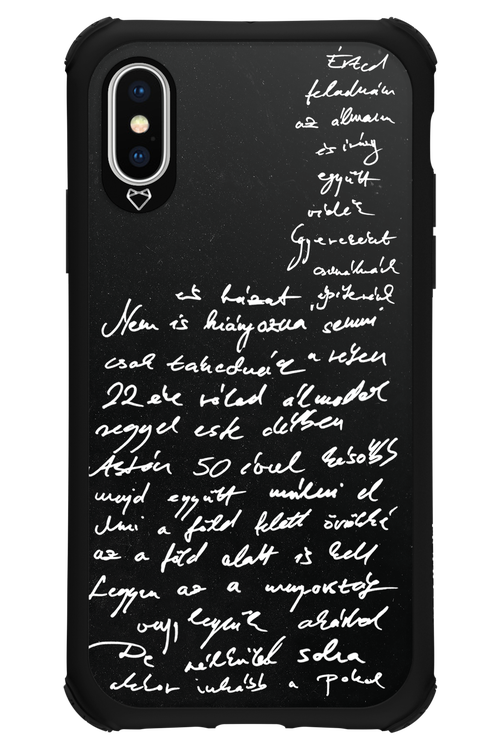 Érted
feladnám
az álmaim
és irány
együtt
vidék
Gyereket
csinálnánk
és házat építenénk
Nem is hiányozna semmi
csak takednék a réten
22 éve rólad álmodok
reggel este délben
Aztán 50 évvel később
majd együtt múlni el
Ami a föld felett örökké
az a föld alatt is kell
Legyen az a mennyország
vagy legyünk akárhol
De nélküled soha
akkor inkább a pokol